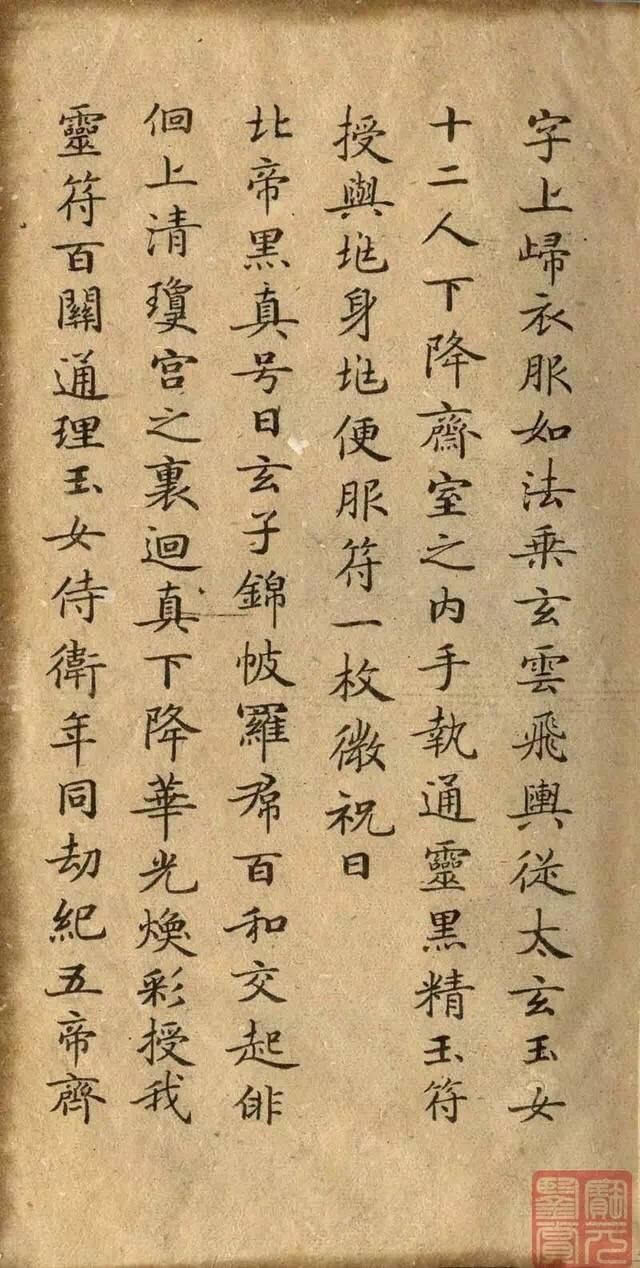 字上歸衣服如法乘玄雲飛輿從太玄玉女
十二人下降齋室之内手執通靈黑精玉符
授與兆身兆便服符一枚微祝曰
北帝黑真号曰玄子錦帔羅帬百和交起俳
佪上清瓊宮之裏迴真下降華光煥彩授我
靈符百關通理玉女侍衛年同劫紀五帝齊